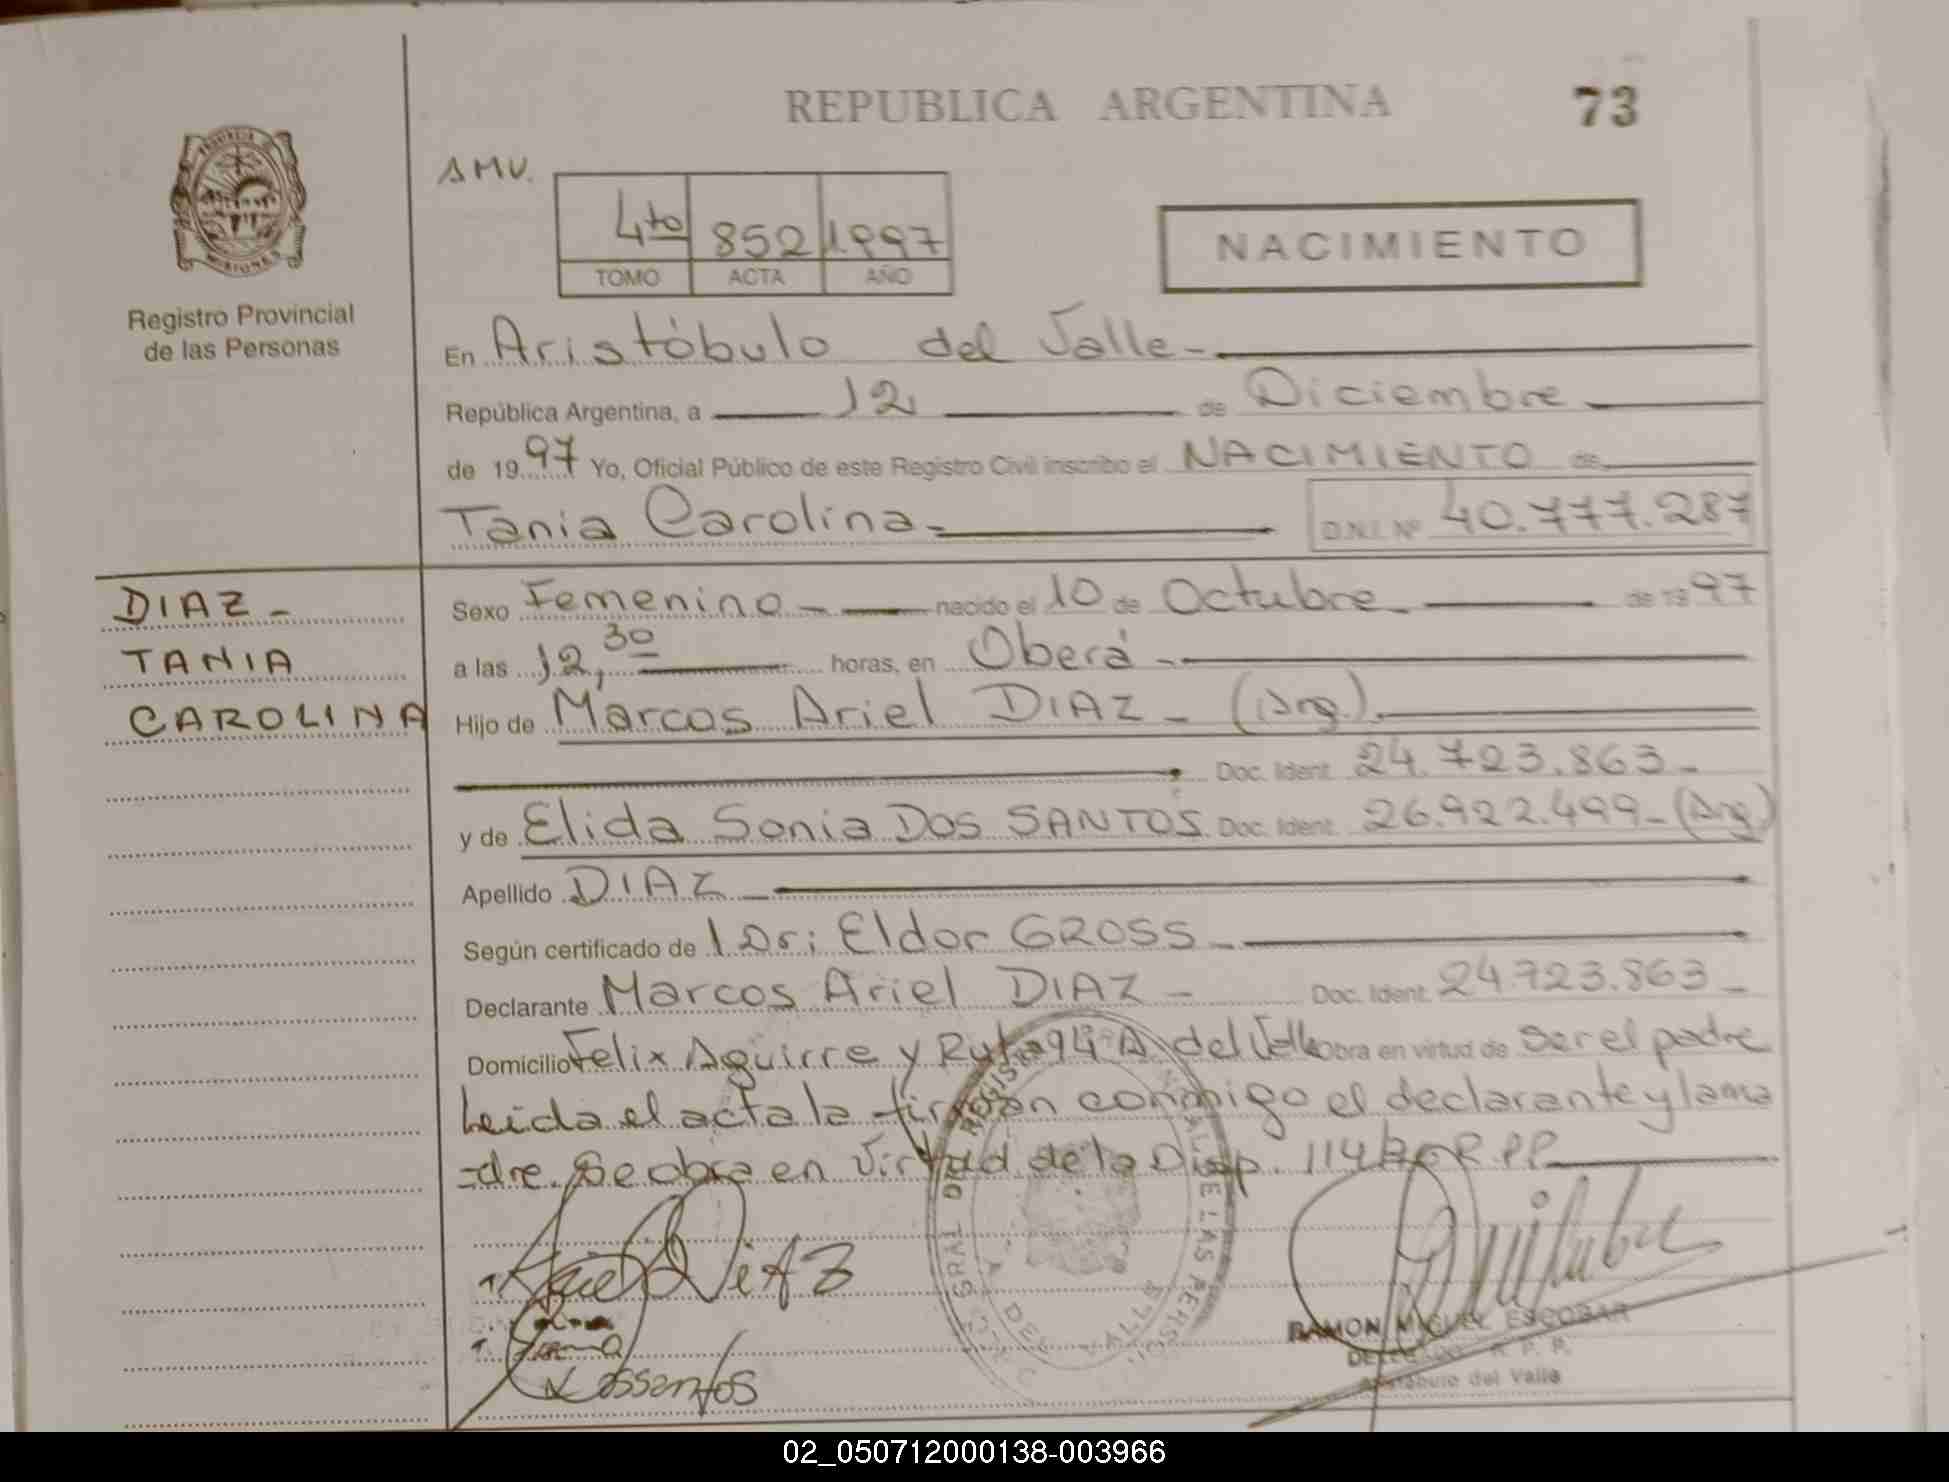 REPUBLICA ARGENTINA
73
AMV.
4to 852 1997
TOMO ACTA AÑO
NACIMIENTO
PROVINCIA
MISIONES
Registro Provincial
de las Personas
En Aristóbulo del Valle-
República Argentina, a 12 de Diciembre
de 1997 Yo, Oficial Público de este Registro Civil inscribo el NACIMIENTO de
Tania Carolina- D.N.I. Nº 40.777.287
DIAZ-
TANIA
CAROLINA
Sexo Femenino- nacido el 10 de Octubre- de 1997
a las 12,30 horas, en Oberá-
Hijo de Marcos Ariel DIAZ- (Arg).
Doc. Ident. 24.723.863-
y de Elida Sonia DOS SANTOS Doc. Ident. 26.922.499-(Arg)
Apellido DIAZ-
Según certificado de 1 Dr: Eldor GROSS-
Declarante Marcos Ariel DIAZ- Doc. Ident. 24.723.863-
Domicilio Felix Aguirre y Ruta 94 A. del Valle obra en virtud de ser el padre
Leida el acta la firman conmigo el declarante y la ma
=dre. Se obra en virtud de la Disp. 114/ R.P.P.
DIAZ
Dossantos
RAMON MIGUEL ESCOBAR
DELEGADO R. P. P.
Aristóbulo del Valle
02_050712000138-003966